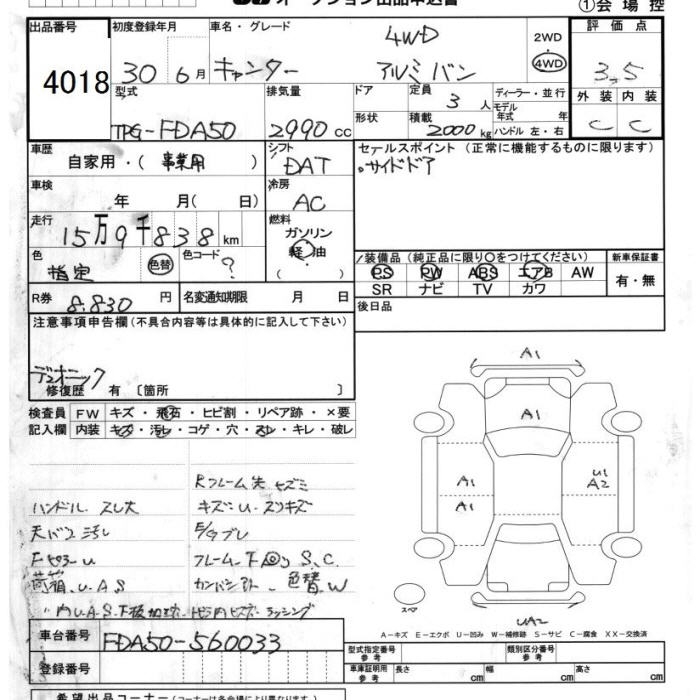 オークション出品申込書
①会場控
出品番号
4018
初度登録年月 車名・グレード
30年 6月 キャンター 4WD アルミバン
2WD ・ 4WD
評価点
3.5
外装 内装
C C
型式 排気量 ドア 定員 ディーラー・並行
TPG-FDA50 2990cc 3人
形状 積載 モデル年式 年
2000kg ハンドル 左・右
車歴 シフト セールスポイント(正常に機能するものに限ります)
自家用・( 事業用 ) DAT 。サイドドア
車検 冷房
年 月( 日) AC
走行 燃料
15万9千838km ガソリン
軽・油
( )
色 色替 色コード
指定 ?
装備品(純正品に限り〇をつけてください) 新車保証書
PS PW ABS エアB AW 有・無
SR ナビ TV カワ
R券 8.830円 名変通知期限 月 日
後日品
注意事項申告欄(不具合内容等は具体的に記入して下さい)
デュオニック
修復歴 有 〔箇所 〕
検査員 FW キズ・飛石・ヒビ割・リペア跡・×要
記入欄 内装 キズ・汚レ・コゲ・穴・スレ・キレ・破レ
A1
A1
A1
A1
U1
A2
UA2
スペア
Rフレーム先 キズミ
ハンドル スレ大 キズ・U・スリキズ
天バリ汚レ
FピラーU フレーム、下回りS、C
荷箱、U、A、S 色替W
A-キズ E-エクボ U-凹み W-補修跡 S-サビ C-腐食 XX-交換済
車台番号 FDA50-560033
型式指定番号 参考 類別区分番号 参考
登録番号
車庫証明用 参考 長さ cm 幅 cm 高さ cm
希望出品コーナー(コーナーは各会場により異なります)